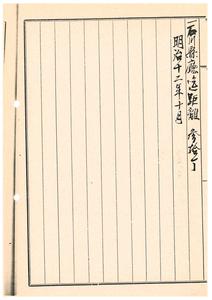 一石川縣廳迄距離 参拾丁
明治十二年十月